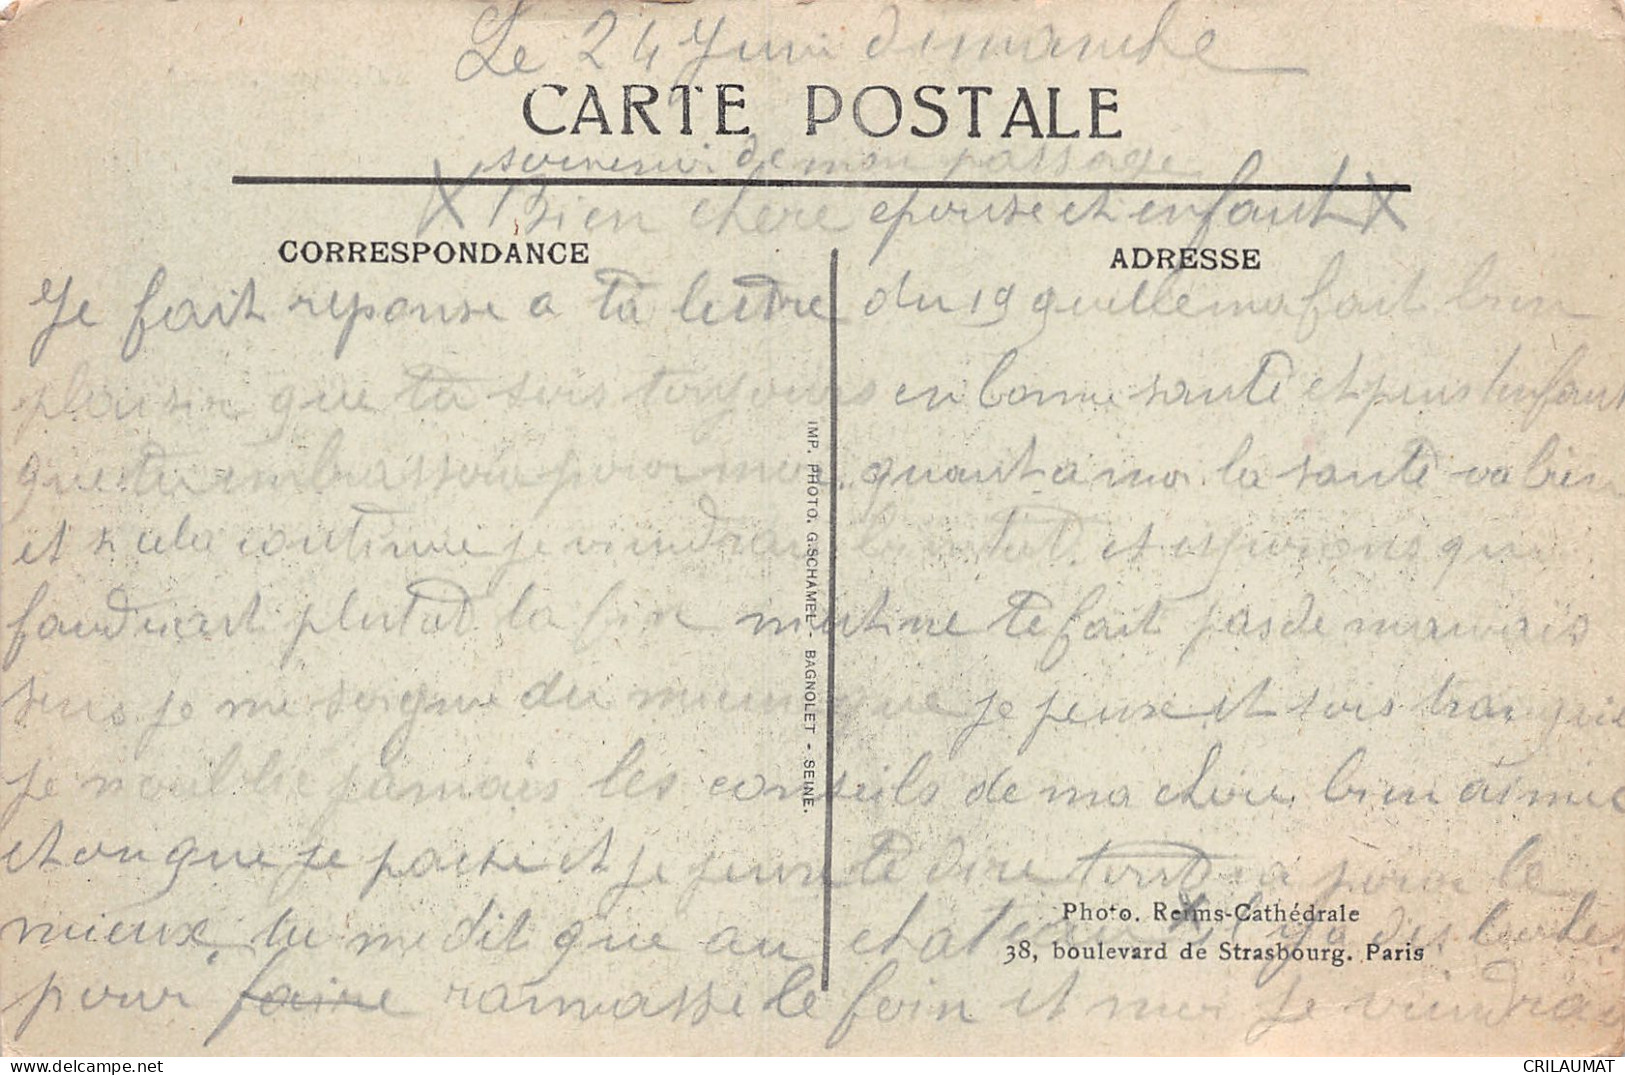 Le 24 Juin dimanche
CARTE POSTALE
souvenir de mon passage
X Bien chere epouse et enfant X
CORRESPONDANCE
ADRESSE
Je fait reponse a ta lettre du 19 qu elle ma fait bien
plaisir que tu sois toujours en bonne santé et puis lenfant
que tu embrassera pour moi. quant a moi la santé va bien
et si cela continue je viendrai bientot et esperons que
faudrait plutot la fin ne te fait pas de mauvais
sens je me soigne du mieux que je peux et sois tranquile
je noublie jamais les conseils de ma chere bien aimée
et que je passe et je peux te dire tout va pour le
mieux, tu me dit que au chateau il y a des
pour faire ramasse le foin et moi je viendrai
IMP. PHOTO. G. SCHAMEL - BAGNOLET - SEINE.
Photo. Reims-Cathédrale
38, boulevard de Strasbourg. Paris
CRILAUMAT